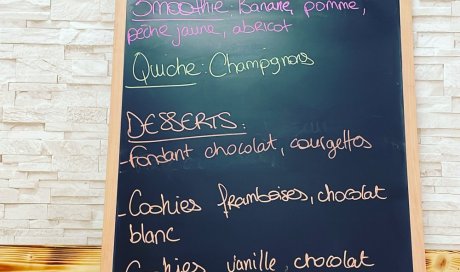 Smoothie : Banane, pomme,
pêche jaune, abricot
Quiche : Champignons
DESSERTS :
- Fondant chocolat, courgettes
- Cookies framboises, chocolat
blanc
Cookies vanille, chocolat